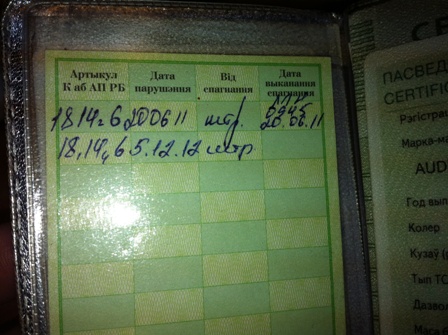 Артыкул К аб АП РБ
Дата парушэння
Від спагнання
Дата выканання спагнання
18.14ч6 200611 штр. 20.06.11
18.14ч6 5.12.12 штр
СЕ
ПАСВЕД
CERTIFIC
Рэгістрац
Марка-ма
AUD
Год вып
Колер
Кузаў (
Тып ТС
Дазвол